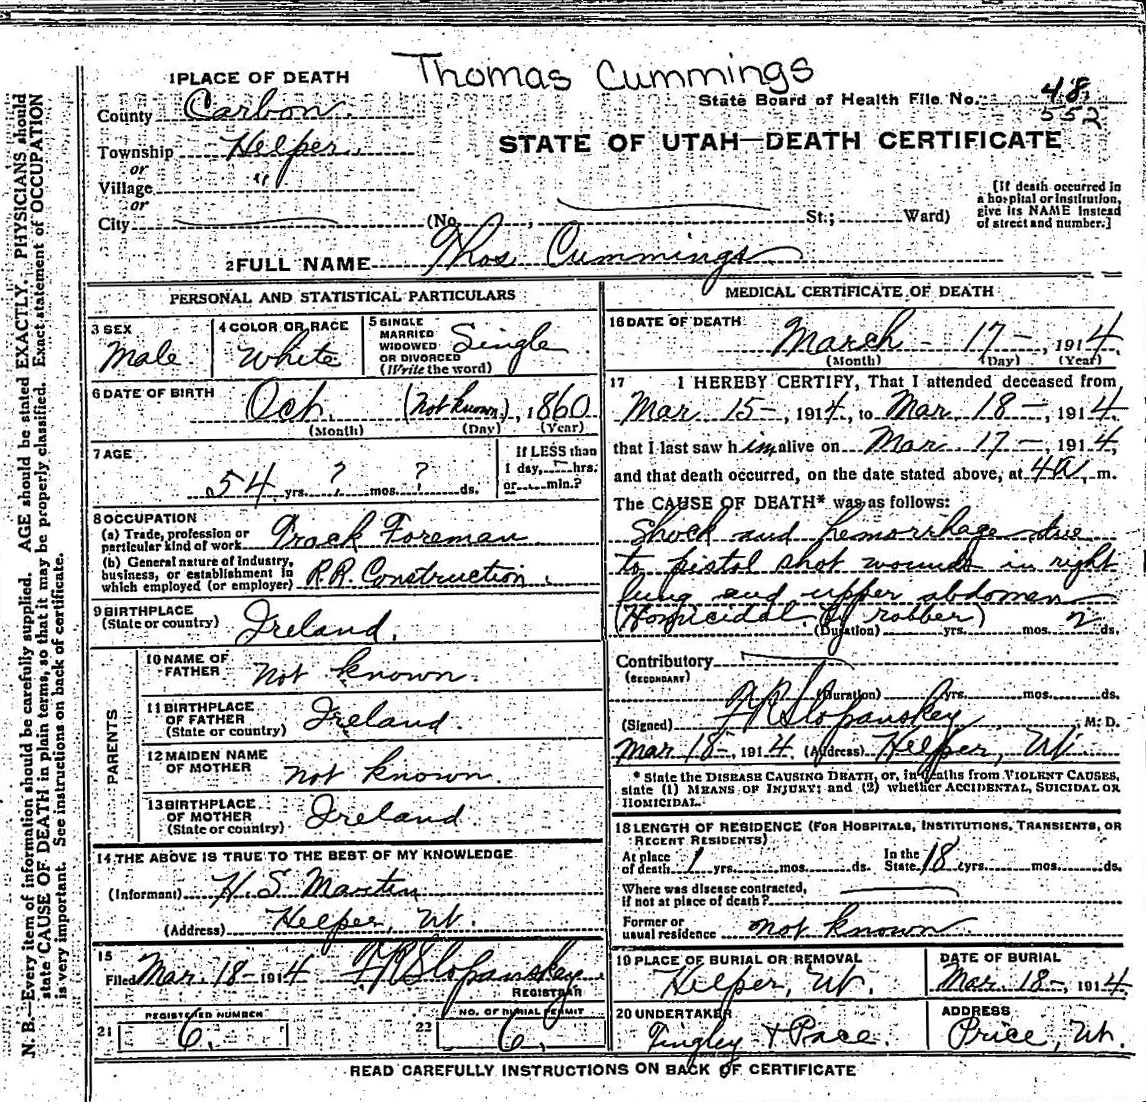 Thomas Cummings
1 PLACE OF DEATH
State Board of Health File No. 48
552
County Carbon.
STATE OF UTAH—DEATH CERTIFICATE
Township Helper.
or
Village "
or
City (No. , St.; Ward)
[If death occurred in
a hospital or institution,
give its NAME instead
of street and number.]
2 FULL NAME Thos Cummings
PERSONAL AND STATISTICAL PARTICULARS
3 SEX
Male
4 COLOR OR RACE
White
5 SINGLE
MARRIED
WIDOWED
OR DIVORCED
(Write the word)
Single
6 DATE OF BIRTH Oct. (Not known), 1860
(Month) (Day) (Year)
7 AGE
54 yrs. ? mos. ? ds.
If LESS than
1 day, hrs.
or min.?
8 OCCUPATION
(a) Trade, profession or
particular kind of work Track Foreman
(b) General nature of Industry,
business, or establishment in
which employed (or employer) R.R. Construction.
9 BIRTHPLACE
(State or country) Ireland.
PARENTS
10 NAME OF
FATHER Not known.
11 BIRTHPLACE
OF FATHER
(State or country) Ireland.
12 MAIDEN NAME
OF MOTHER not known.
13 BIRTHPLACE
OF MOTHER
(State or country) Ireland.
14 THE ABOVE IS TRUE TO THE BEST OF MY KNOWLEDGE
(Informant) H. S. Marten
(Address) Helper, Ut.
15
Filed Mar. 18- 1914 F R Slopanskey
REGISTRAR
21 REGISTERED NUMBER
6.
22 NO. OF BURIAL PERMIT
6.
MEDICAL CERTIFICATE OF DEATH
16 DATE OF DEATH
March - 17 -, 1914
(Month) (Day) (Year)
17 I HEREBY CERTIFY, That I attended deceased from
Mar 15 -, 1914, to Mar 18 -, 1914.
that I last saw him alive on Mar 17 -, 1914,
and that death occurred, on the date stated above, at 4 a. m.
The CAUSE OF DEATH* was as follows:
Shock and hemorrhage due
to pistol shot wounds in right
lung and upper abdomen
(Homicidal. By robber)
(Duration) yrs. mos. 2 ds.
Contributory
(SECONDARY)
(Duration) yrs. mos. ds.
(Signed) F R Slopanskey, M. D.
Mar 18-, 1914. (Address) Helper, Ut.
* State the DISEASE CAUSING DEATH, or, in deaths from VIOLENT CAUSES,
state (1) MEANS OF INJURY; and (2) whether ACCIDENTAL, SUICIDAL OR
HOMICIDAL.
18 LENGTH OF RESIDENCE (FOR HOSPITALS, INSTITUTIONS, TRANSIENTS, OR
RECENT RESIDENTS)
At place
of death 1 yrs. mos. ds. In the
State 18 yrs. mos. ds.
Where was disease contracted,
if not at place of death?
Former or
usual residence not known
19 PLACE OF BURIAL OR REMOVAL
Helper, Ut.
DATE OF BURIAL
Mar. 18-, 1914.
20 UNDERTAKER
Tingley & Pace.
ADDRESS
Price, Ut.
READ CAREFULLY INSTRUCTIONS ON BACK OF CERTIFICATE
N. B.—Every item of information should be carefully supplied. AGE should be stated EXACTLY. PHYSICIANS should
state CAUSE OF DEATH in plain terms, so that it may be properly classified. Exact statement of OCCUPATION
is very important. See instructions on back of certificate.